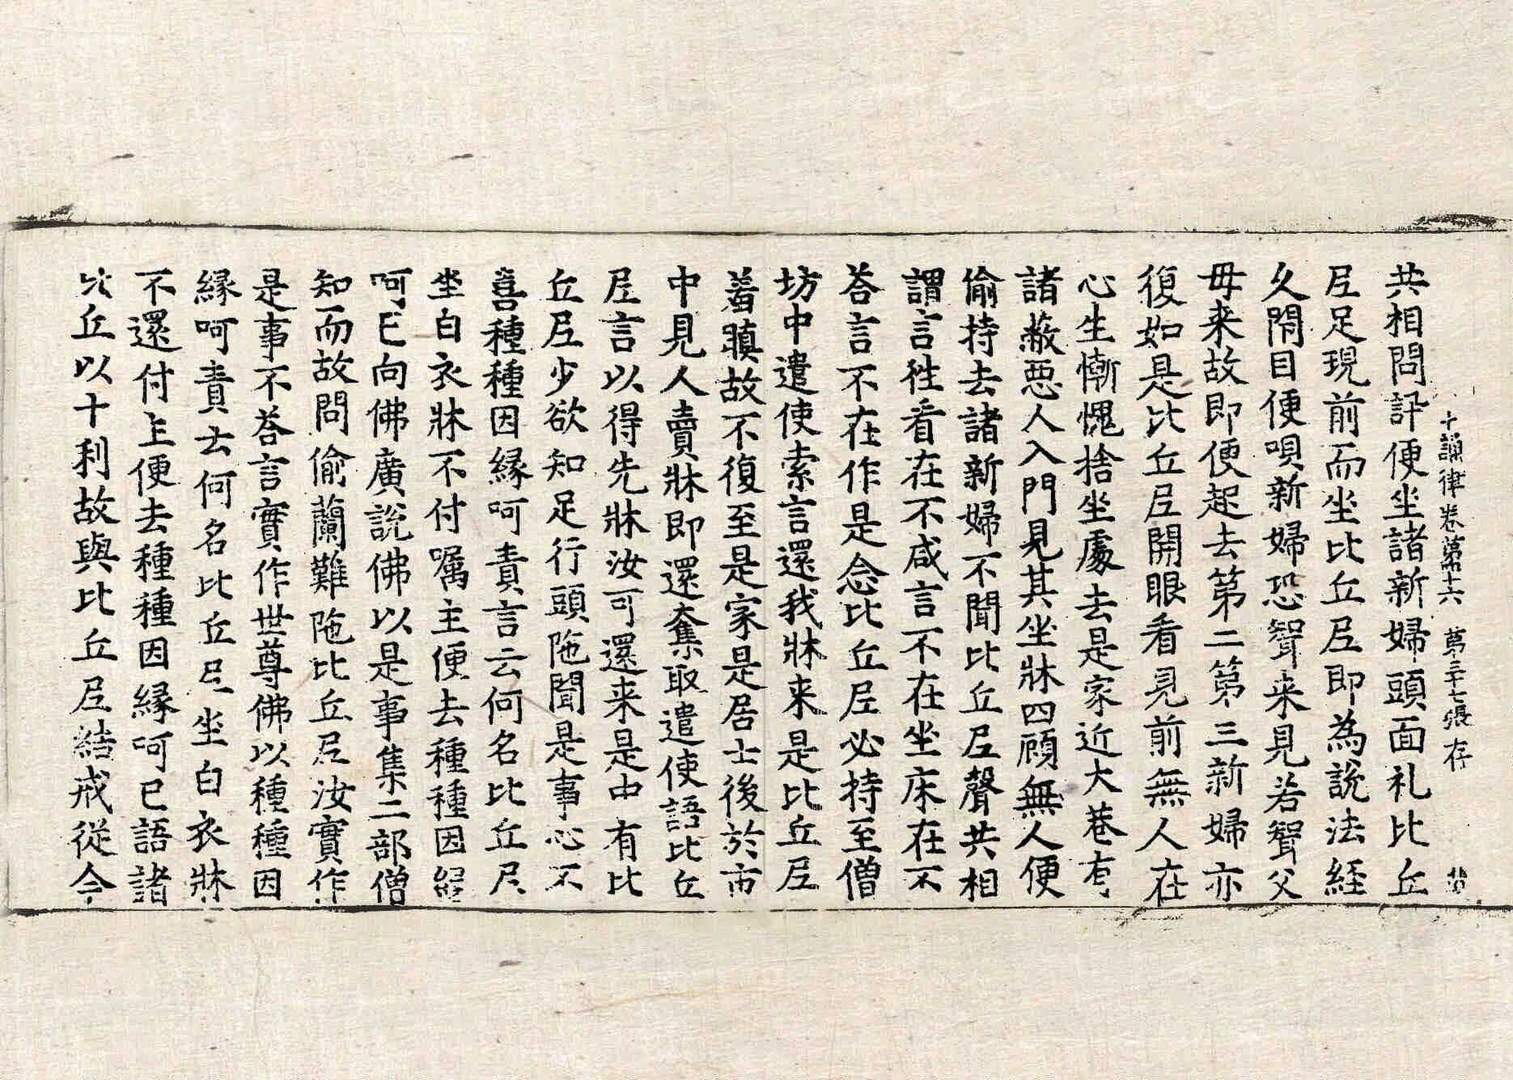 十誦律卷第十六 第三十七張 存
共相問訊便坐諸新婦頭面礼比丘
尼足現前而坐比丘尼即為說法経
久閇目便唄新婦恐聟来見若聟父
母来故即便起去第二第三新婦亦
復如是比丘尼開眼看見前無人在
心生慚愧捨坐處去是家近大巷有
諸蔽惡人入門見其坐牀四顧無人便
偷持去諸新婦不聞比丘尼聲共相
謂言徃看在不咸言不在坐床在不
荅言不在作是念比丘尼必持至僧
坊中遣使索言還我牀来是比丘尼
羞瞋故不復至是家是居士後於市
中見人賣牀即還奪取遣使語比丘
尼言以得先牀汝可還来是中有比
丘尼少欲知足行頭陁聞是事心不
喜種種因縁呵責言云何名比丘尼
坐白衣牀不付嘱主便去種種因縁
呵已向佛廣說佛以是事集二部僧
知而故問偷蘭難陁比丘尼汝實作
是事不荅言實作世尊佛以種種因
縁呵責云何名比丘尼坐白衣牀
不還付主便去種種因縁呵已語諸
比丘以十利故與比丘尼結戒從今